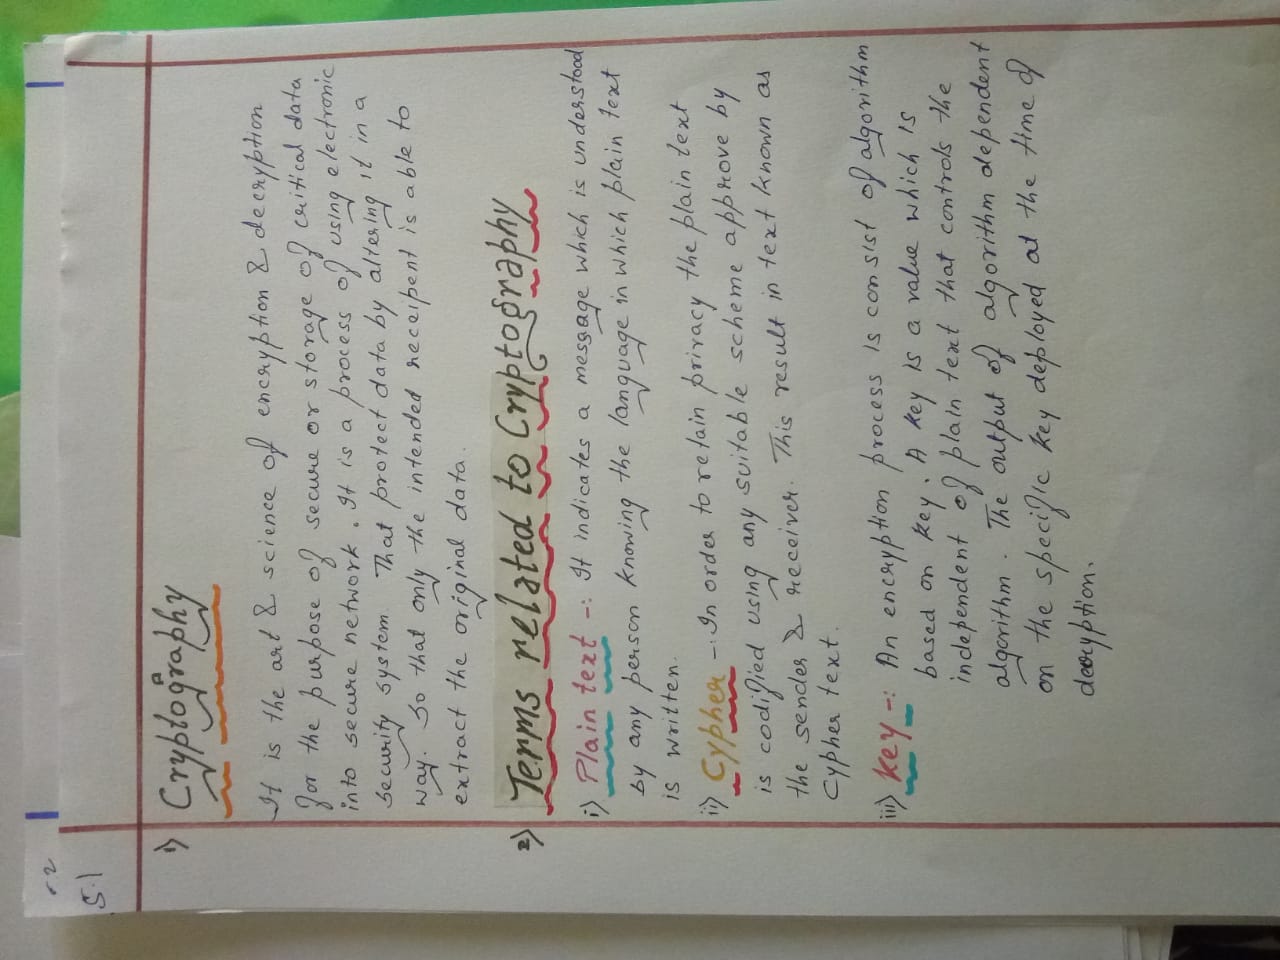 5.1
1) Cryptography
It is the art & science of encryption & decryption
for the purpose of secure or storage of critical data
into secure network. It is a process of using electronic
security system. That protect data by altering it in a
way. So that only the intended receipent is able to
extract the original data.
2) Terms related to Cryptography
i) Plain text -: It indicates a message which is understood
by any person knowing the language in which plain text
is written.
ii) Cypher -: In order to retain privacy the plain text
is codified using any suitable scheme approve by
the sender & receiver. This result in text known as
Cypher text.
iii) Key -: An encryption process is consist of algorithm
based on key. A key is a value which is
independent of plain text that controls the
algorithm. The output of algorithm dependent
on the specific key deployed at the time of
decryption.